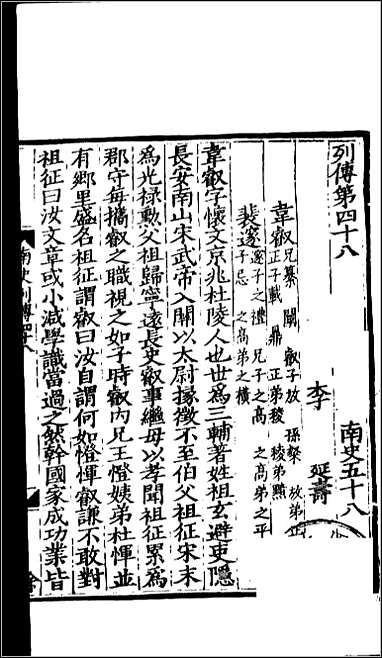 列傳第四十八　南史五十八
李　延壽
韋叡 兄纂　闡　叡子放　孫粲　放弟正
正子載　鼎　正弟稜　稜弟黯
裴邃 邃子之禮　兄子之高　之高弟之平
子忌　之高弟之橫
韋叡字懷文京兆杜陵人也世爲三輔著姓祖玄避吏隱
長安南山宋武帝入關以太尉掾徵不至伯父祖征宋末
爲光祿勲父祖歸寧遠長史叡事繼母以孝聞祖征累爲
郡守每攜叡之職視之如子時叡內兄王憕姨弟杜惲並
有鄉里盛名祖征謂叡曰汝自謂何如憕惲叡謙不敢對
祖征曰汝文章或小減學識當過之然幹國家成功業皆
南史列傳四十八